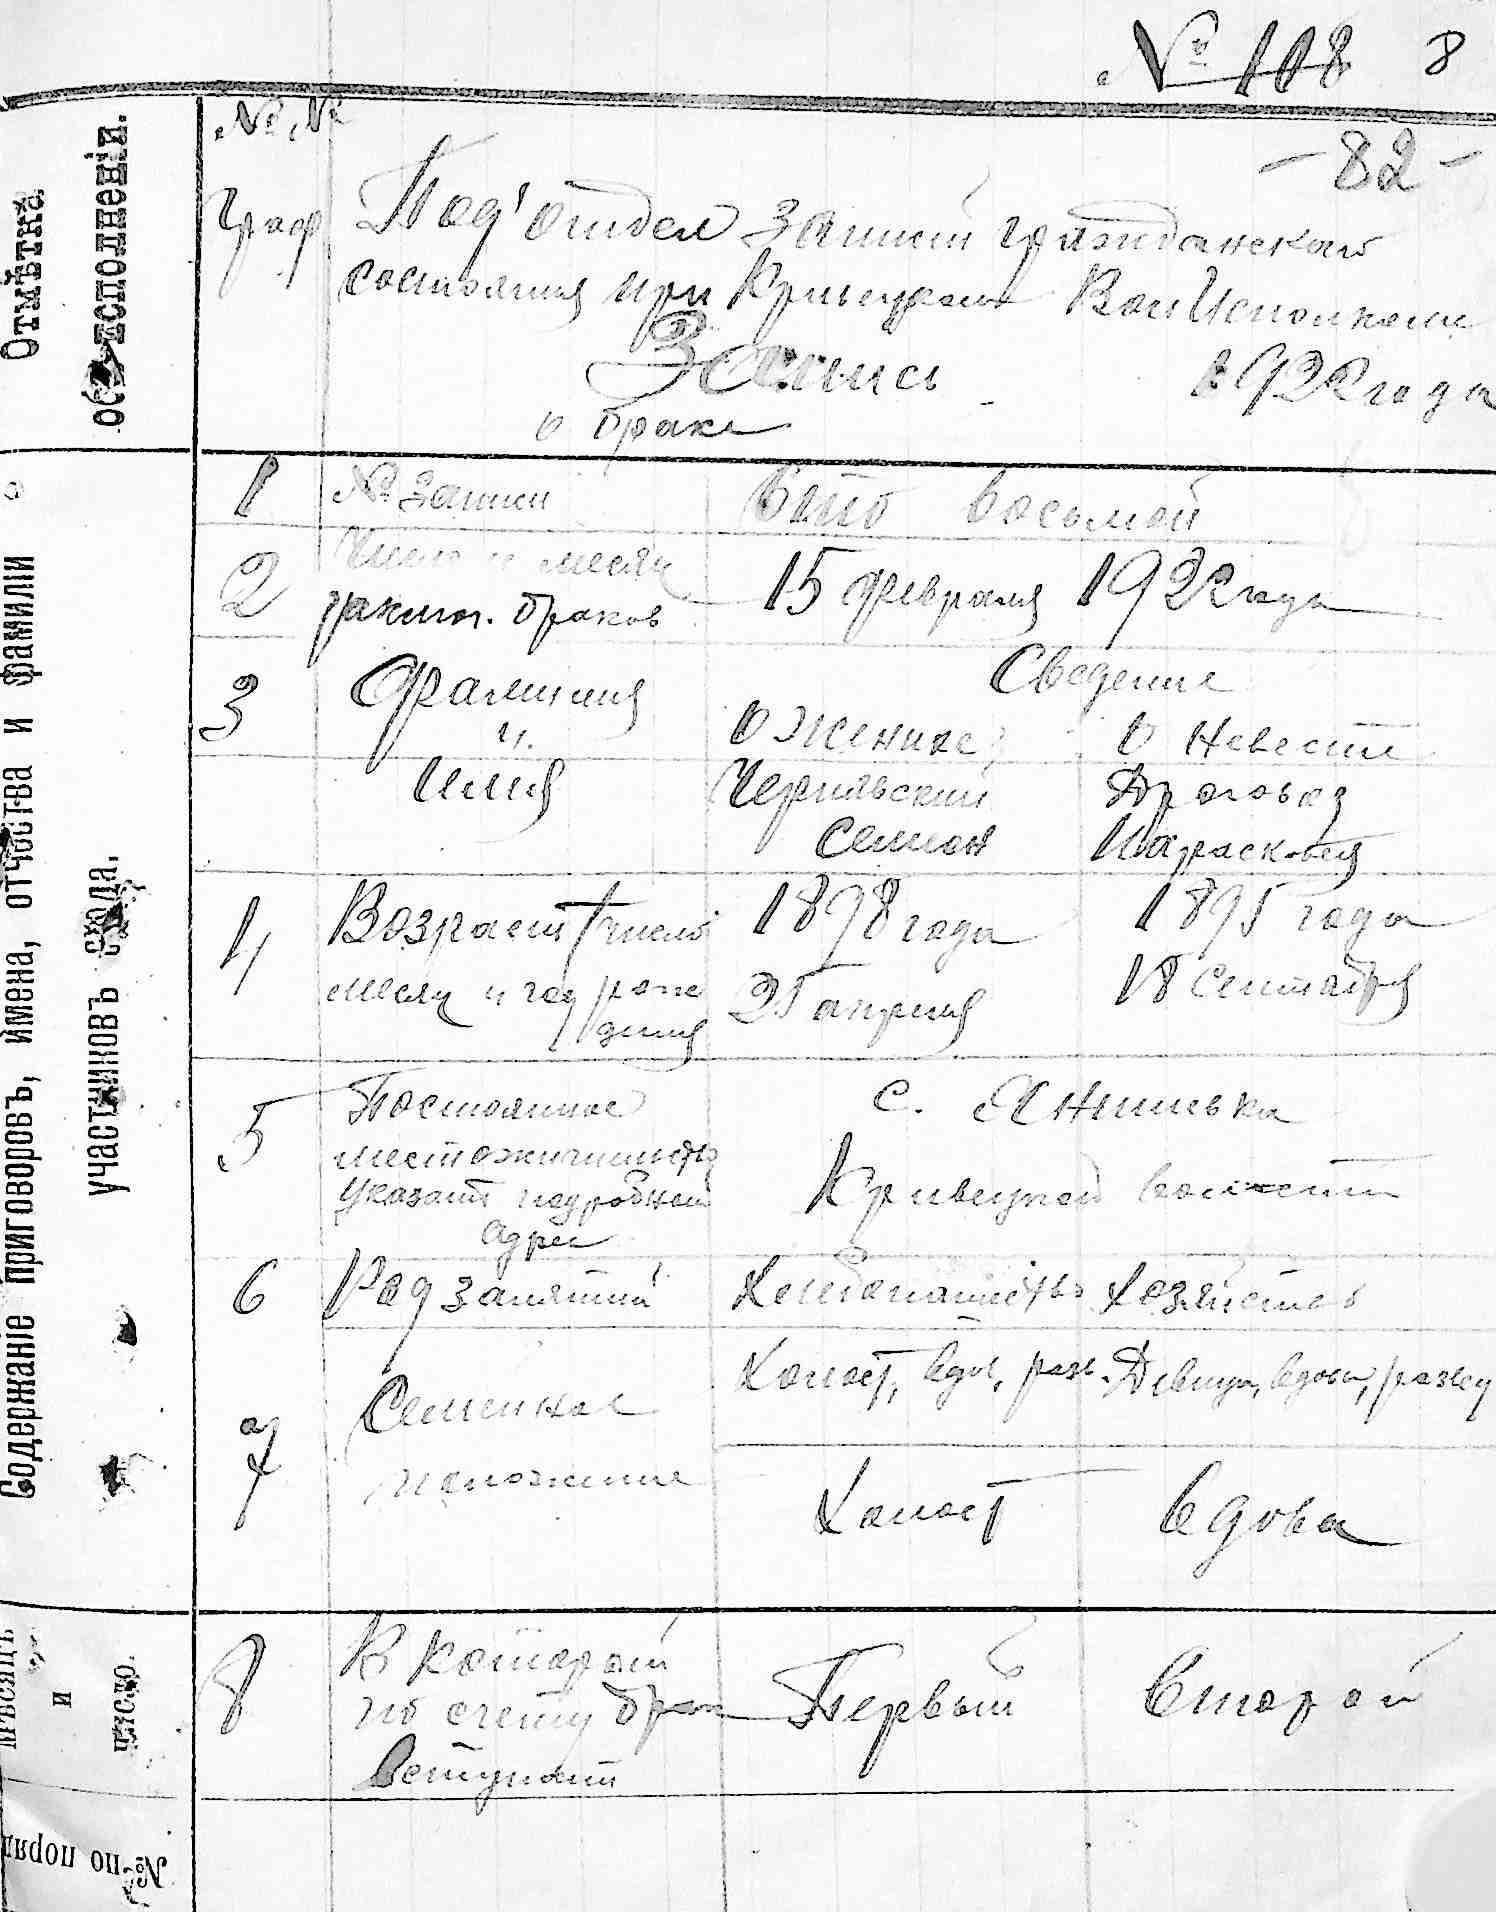 № 108 8
- 82 -
№№
Граф
Под'отдел записи гражданского
состояния при Кривецком ВолИсполкоме
Запись 1922 года
о браке
1 № записи Сто восьмой
2 Число и месяц
заключ. браков 15 февраля 1922 года
3 Фамилия Сведение
и О женихе О Невесте
Имя Чернявский Драговоз
Семен Парасковья
4 Возраст/число 1898 года 1895 года
месяц и год рож 25 апреля 18 Сентября
дения
5 Постоянное с. Янишевка
местожительство
указать подробный Кривецкой волости
адрес
6 Род занятий Хлебопашество Хозяйство
Холост, вдов, разв. Девица, вдова, развед
7 Семейное
положение
Холост Вдова
8 В который
по счету брак Первый Второй
вступают
Отмѣтка
объ исполненіи.
Содержаніе приговоровъ, имена, отчества и фамиліи
участниковъ схода.
Мѣсяцъ
и
число.
№ по поряд